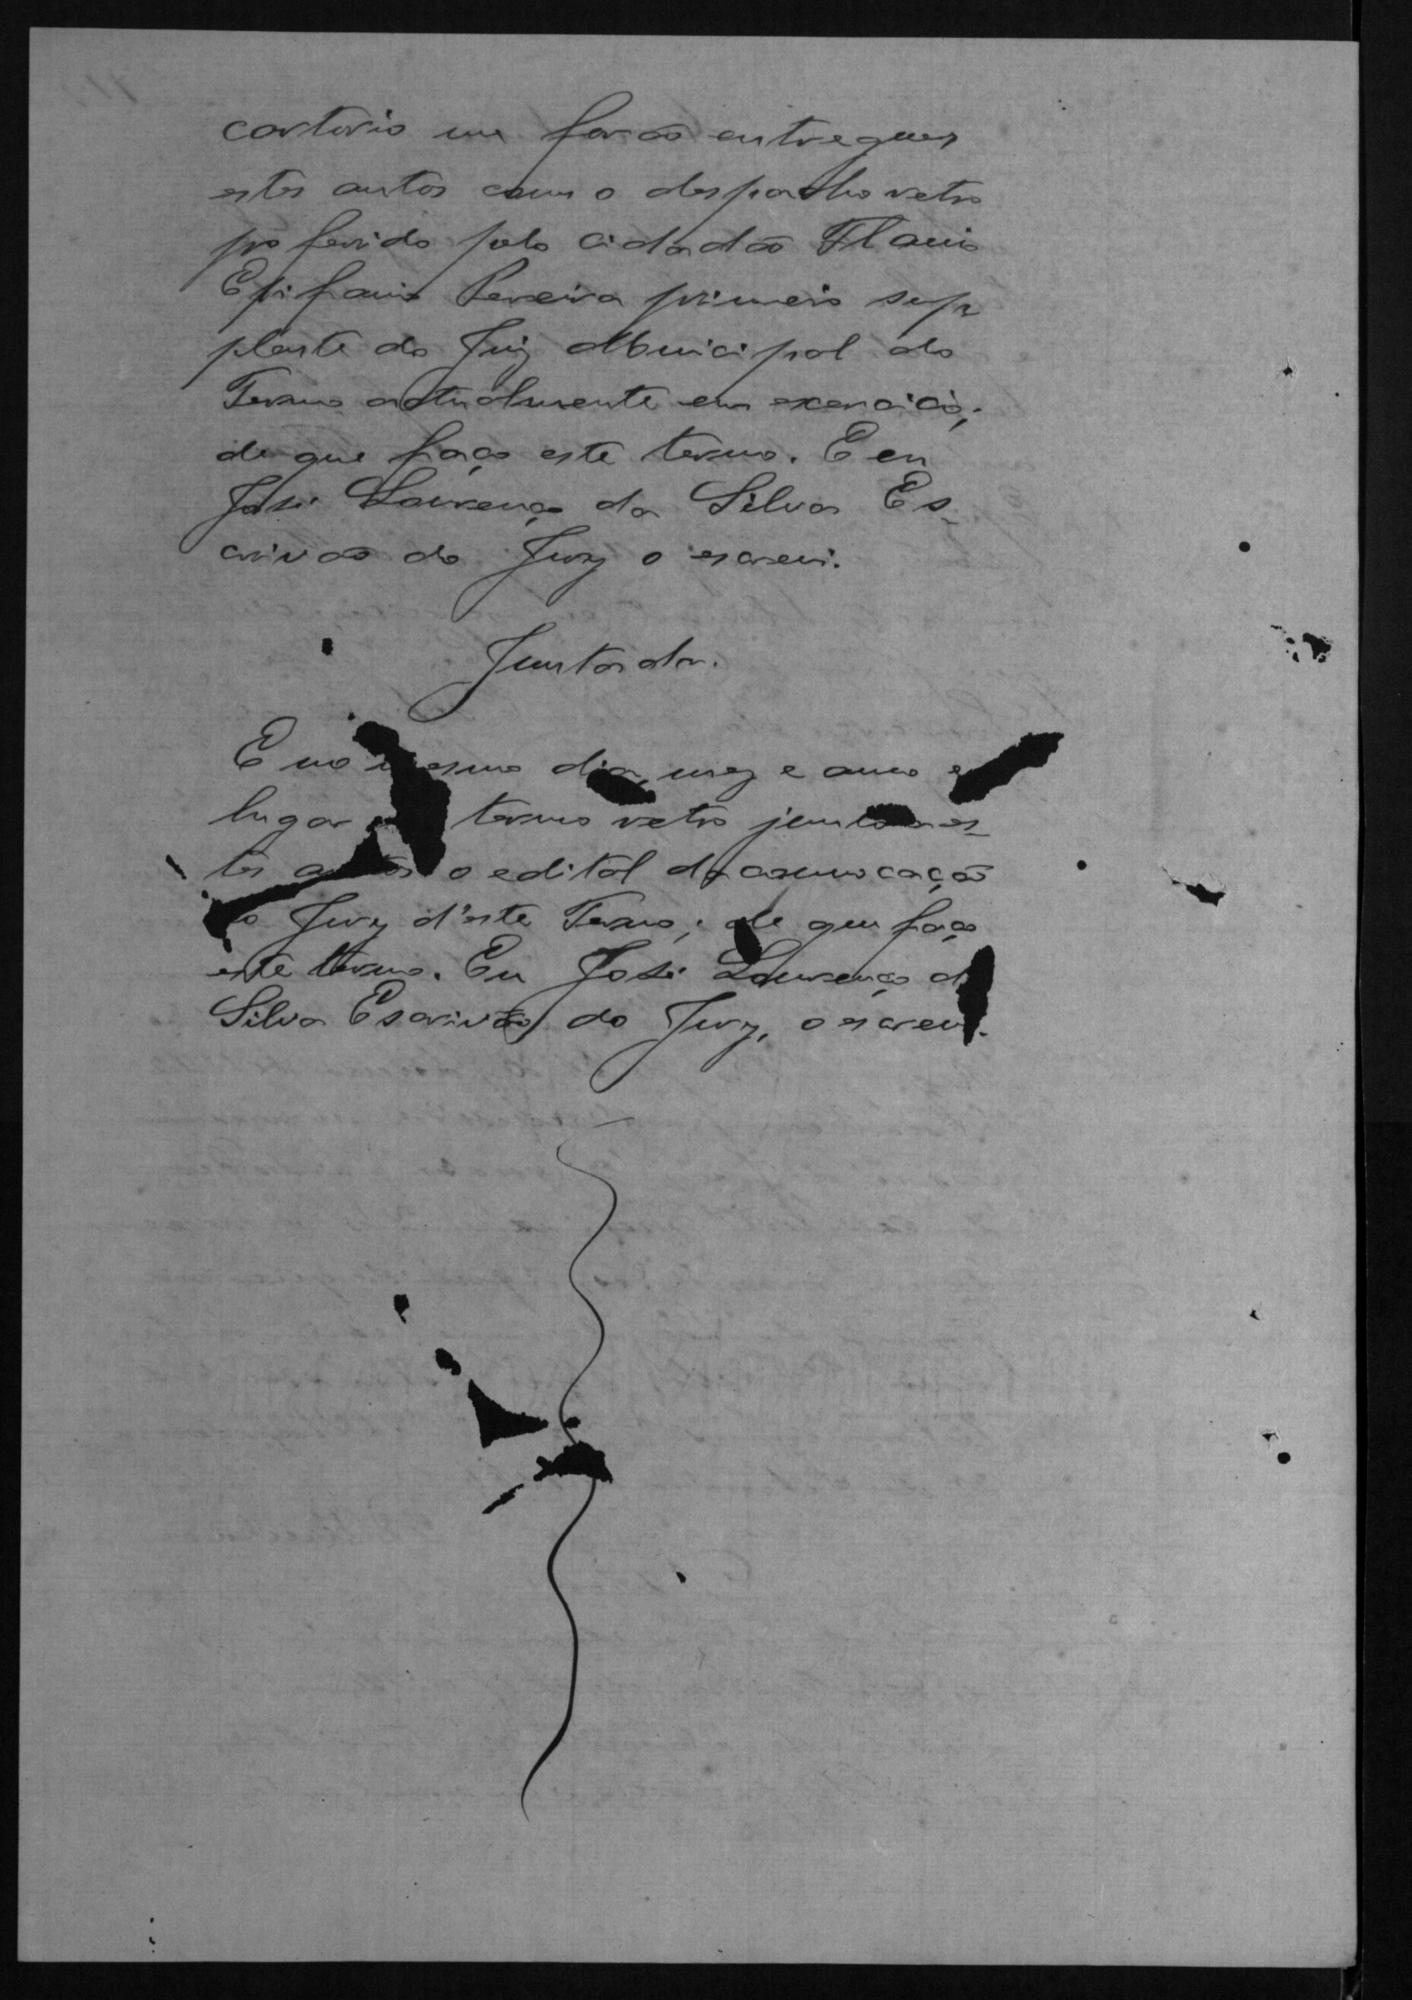 cartorio me forão entregues
estes autos com o despacho retro
proferido pelo cidadão Flavio
Epifanio Pereira primeiro sup
plente do Juiz Municipal do
Termo actualmente em exercicio;
de que faço este termo. E eu
José Lourenço da Silva Es-
crivão do Jury o escrevi.
Juntada.
E no mesmo dia, mez e anno e
lugar termo retro junto a es-
tes autos o edital da convocação
do Jury d'este Termo; de que faço
este termo. Eu José Lourenço da
Silva Escrivão do Jury, o escrevi.